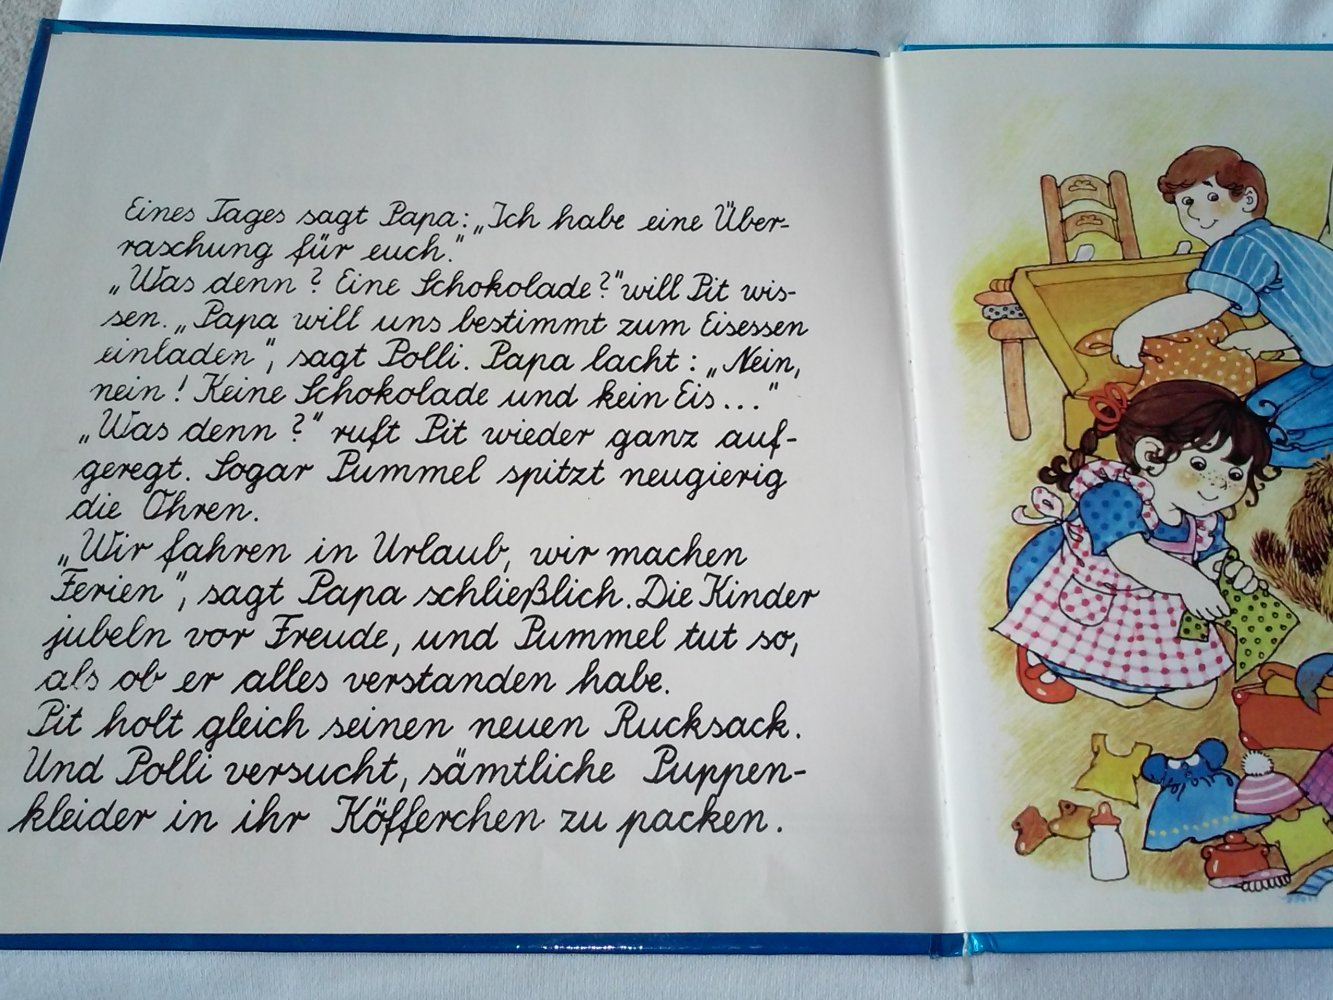 Eines Tages sagt Papa: „Ich habe eine Über-
raschung für euch."
„Was denn? Eine Schokolade?" will Pit wis-
sen. „Papa will uns bestimmt zum Eisessen
einladen", sagt Polli. Papa lacht: „Nein,
nein! Keine Schokolade und kein Eis..."
„Was denn?" ruft Pit wieder ganz auf-
geregt. Sogar Pummel spitzt neugierig
die Ohren.
„Wir fahren in Urlaub, wir machen
Ferien", sagt Papa schließlich. Die Kinder
jubeln vor Freude, und Pummel tut so,
als ob er alles verstanden habe.
Pit holt gleich seinen neuen Rucksack.
Und Polli versucht, sämtliche Puppen-
kleider in ihr Köfferchen zu packen.